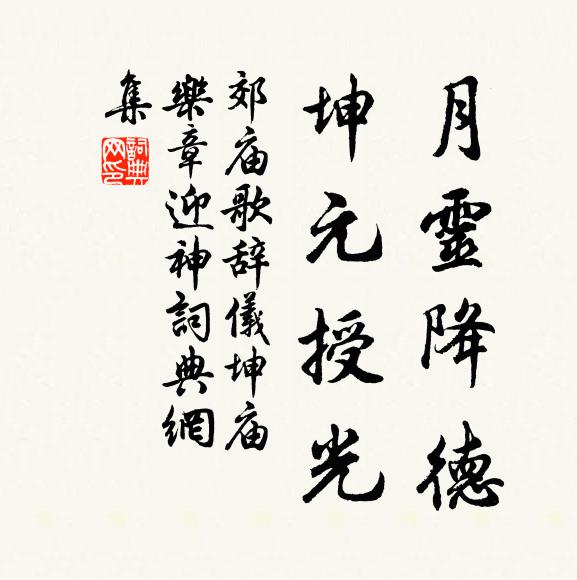 月靈降德
坤元授光
郊庙歌辞儀坤庙
樂章迎神詞典網
集
詞典
网印